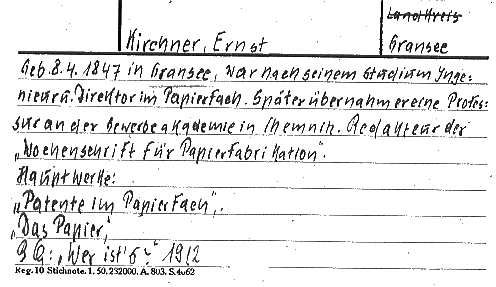 Landkreis
Kirchner, Ernst
Gransee
Geb. 8.4.1847 in Gransee, war nach seinem Studium Inge-
nieur u. Direktor im Papierfach. Später übernahm er eine Profes-
sur an der Gewerbeakademie in Chemnih. Redakteur der
„Wochenschrift für Papierfabrikation“.
Hauptwerke:
„Patente im Papierfach“,
„Das Papier“,
BQ: „Wer ist's“ 1912
Reg. 10 Stichnote. 1, 50, 232000. A. 803. S. 4062